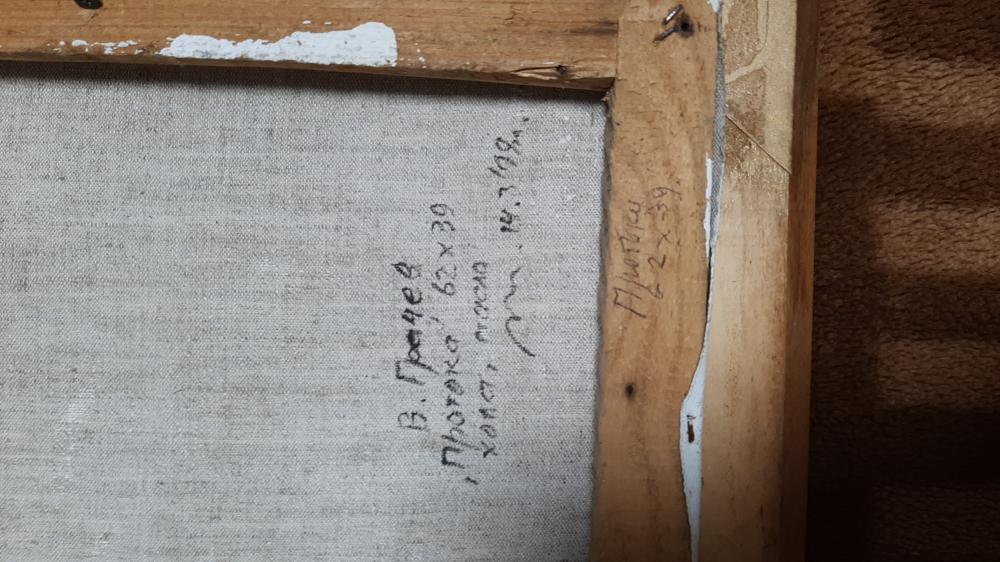 В. Грачев
„Протока“ 62х39
холст, масло
14.3.98г.
Протока
62х39.